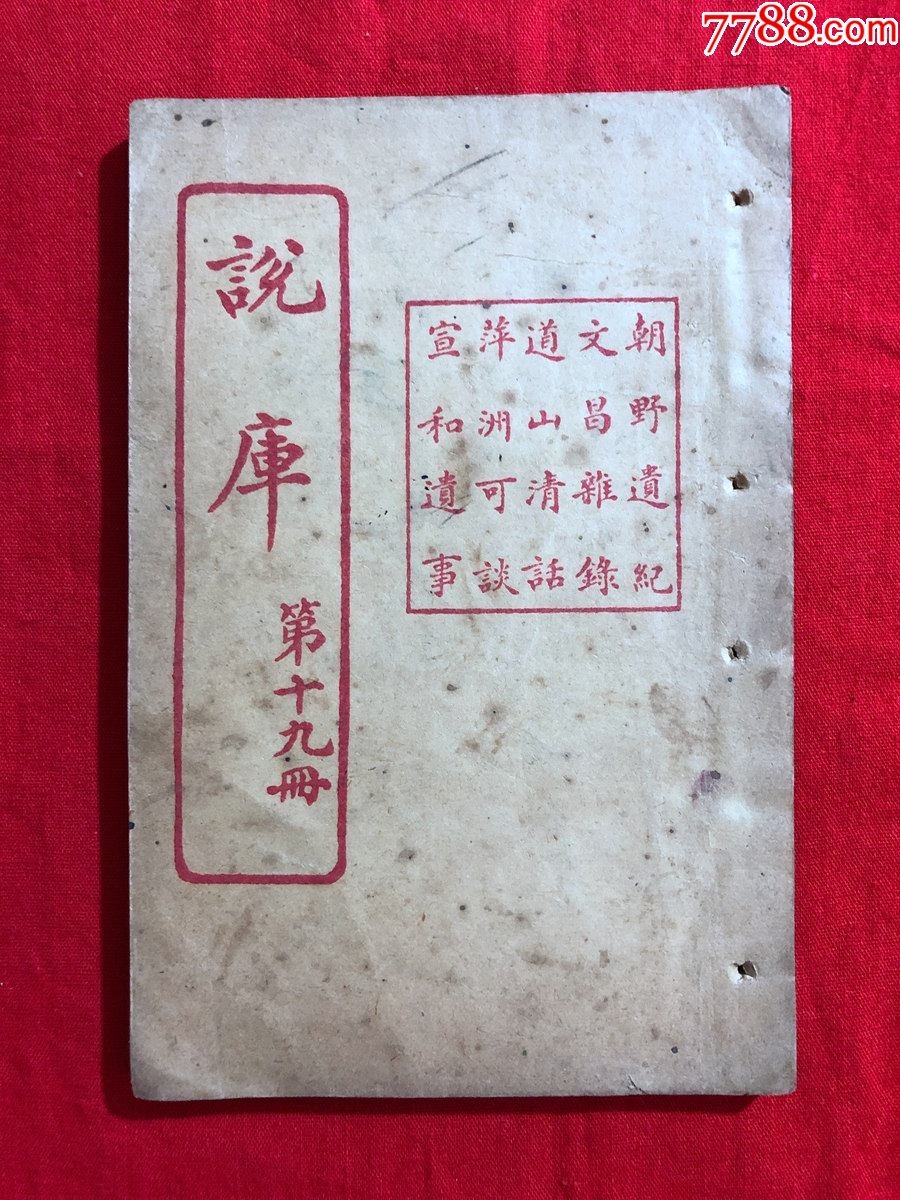 7788.com
朝野遺紀
文昌雜錄
道山清話
萍洲可談
宣和遺事
說庫
第十九冊